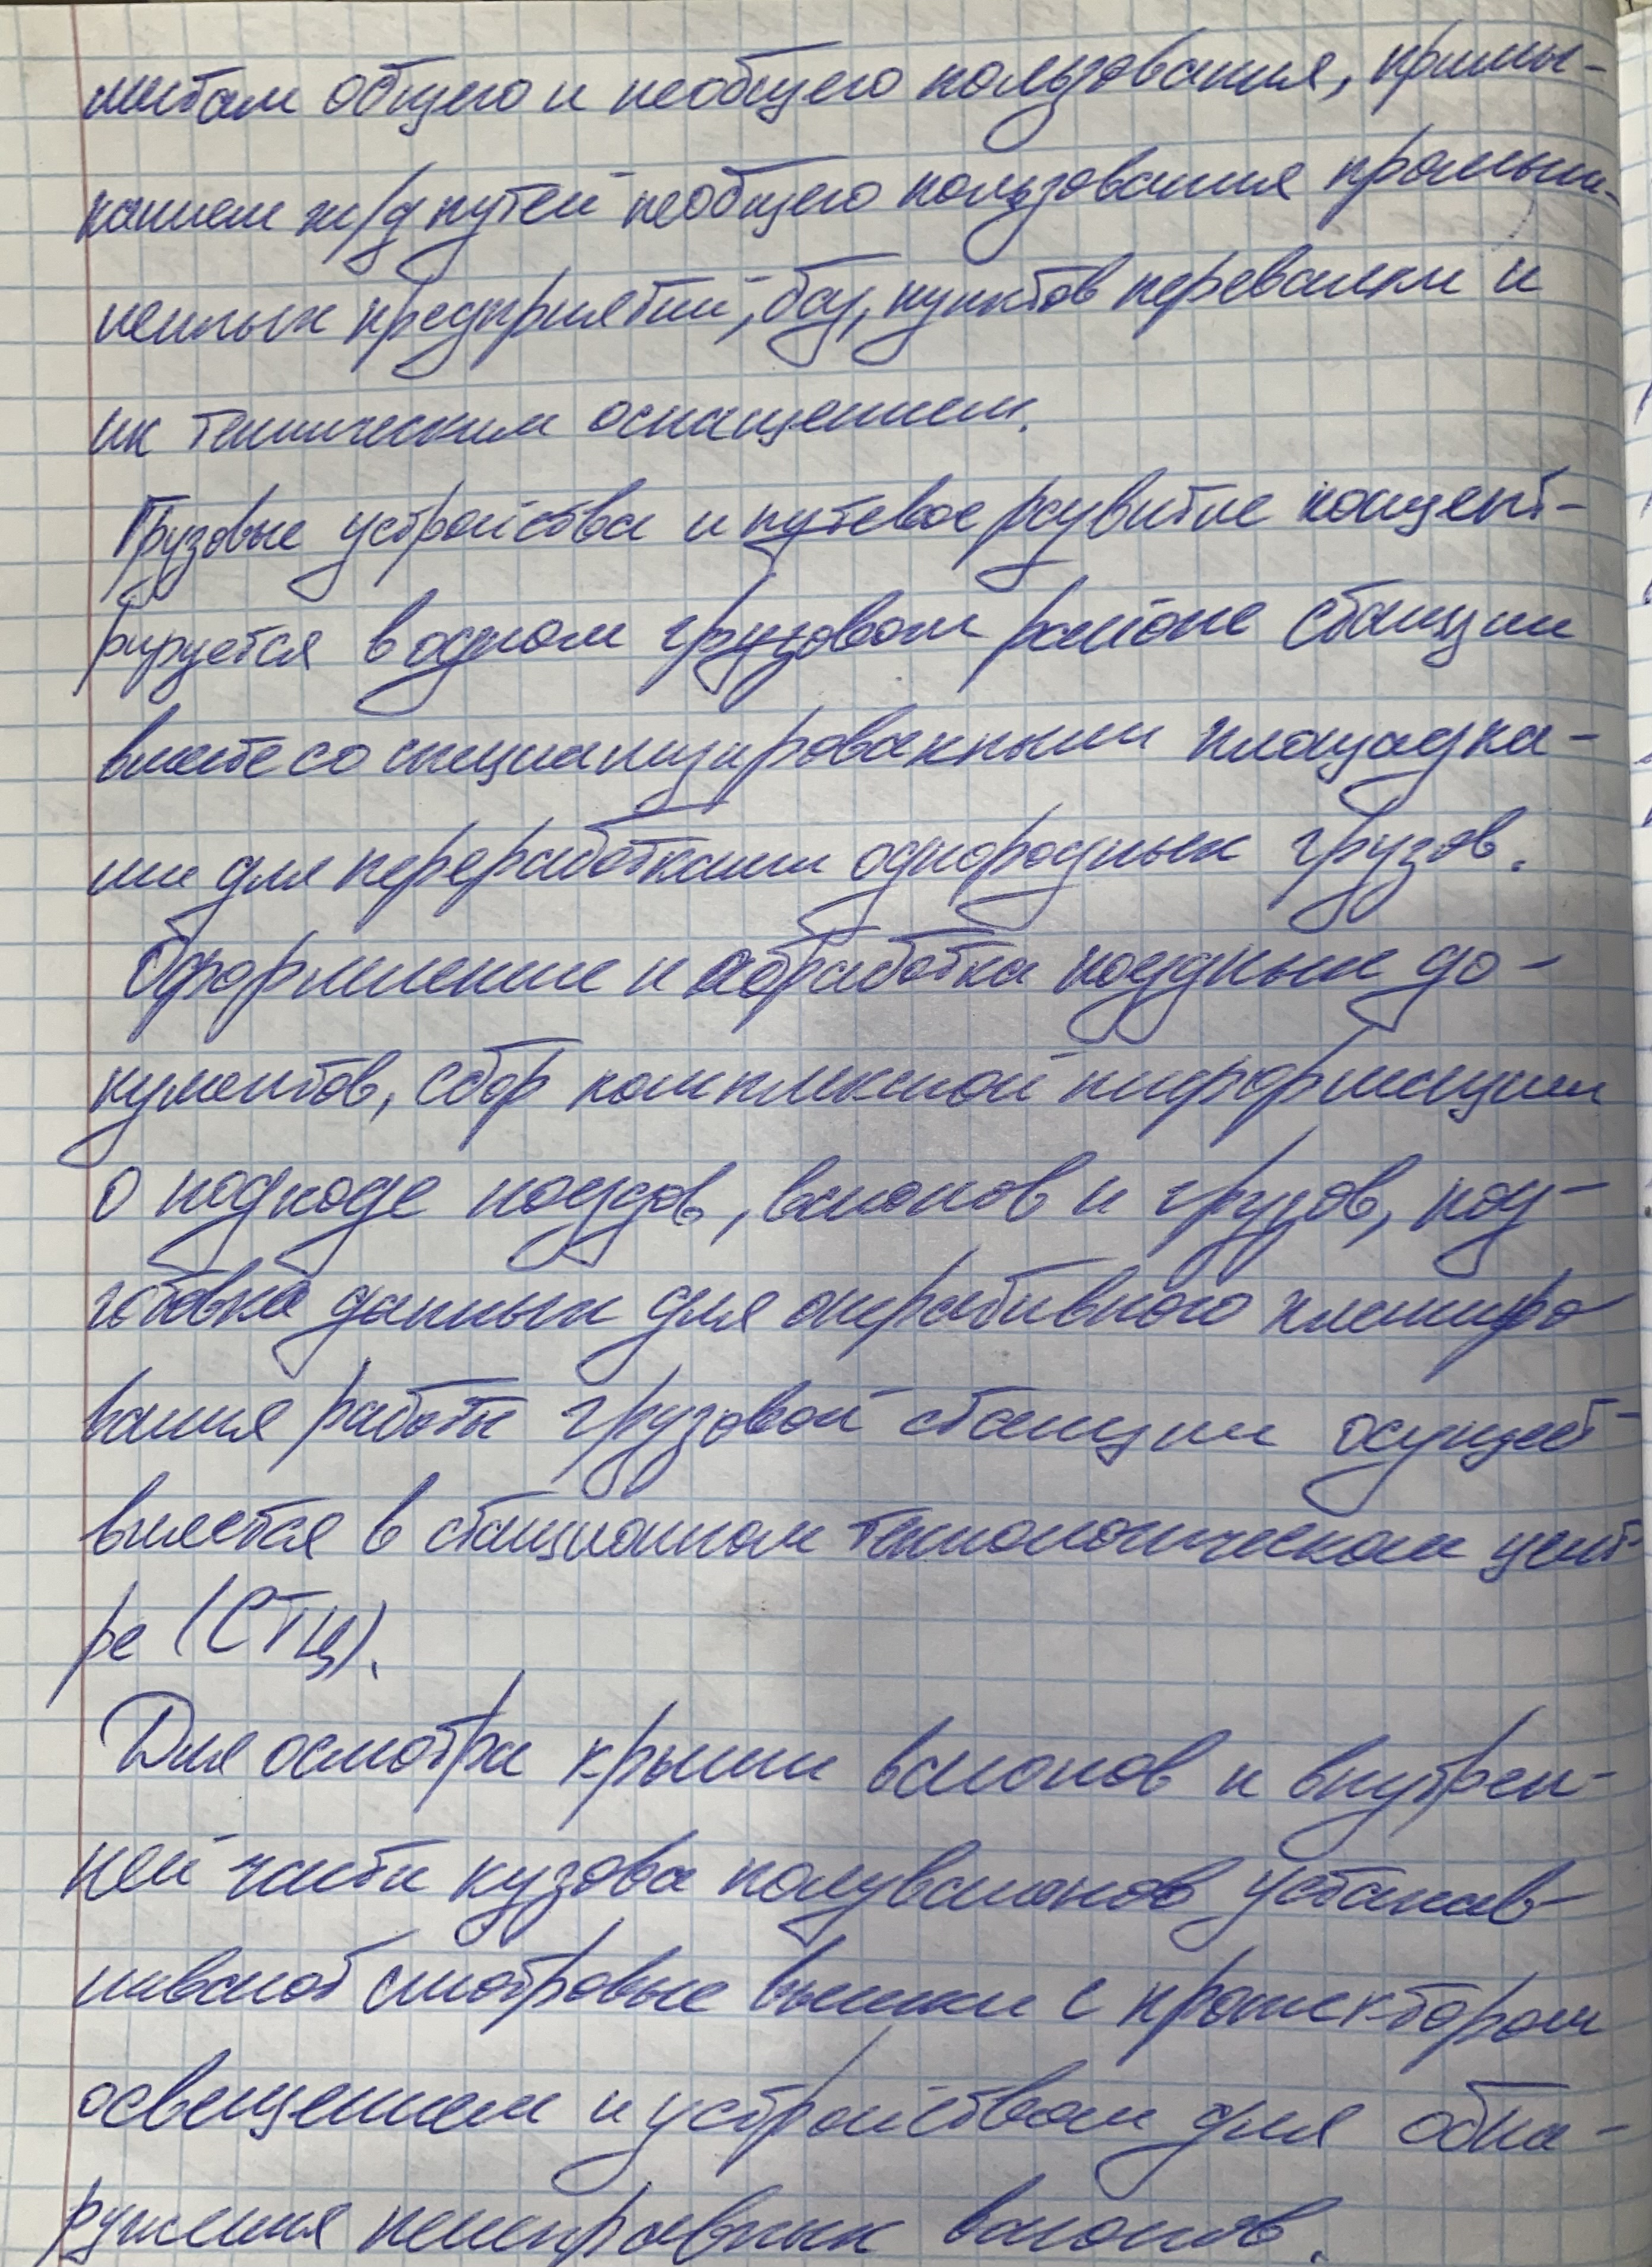 митом общего и необщего пользования, примы-
канием ж/д путей необщего пользования промыш-
ленных предприятий, баз, пунктов перевалки и
их техническим оснащением.
Грузовые устройства и путевое развитие концент-
рируется в одном грузовом районе станции
вместе со специализированными площадка-
ми для переработками однородных грузов.
Оформление и обработка поездных до-
кументов, сбор комплексной информации
о подходе поездов, вагонов и грузов, под-
готовка данных для оперативного планиро
вания работы грузовой станции осущест-
вляется в станционном технологическом цент-
ре (СТЦ).
Для осмотра крыш вагонов и внутрен-
ней части кузова полувагонов устанав-
ливают смотровые вышки с прожектором
освещением и устройством для обна-
ружения неисправных вагонов.